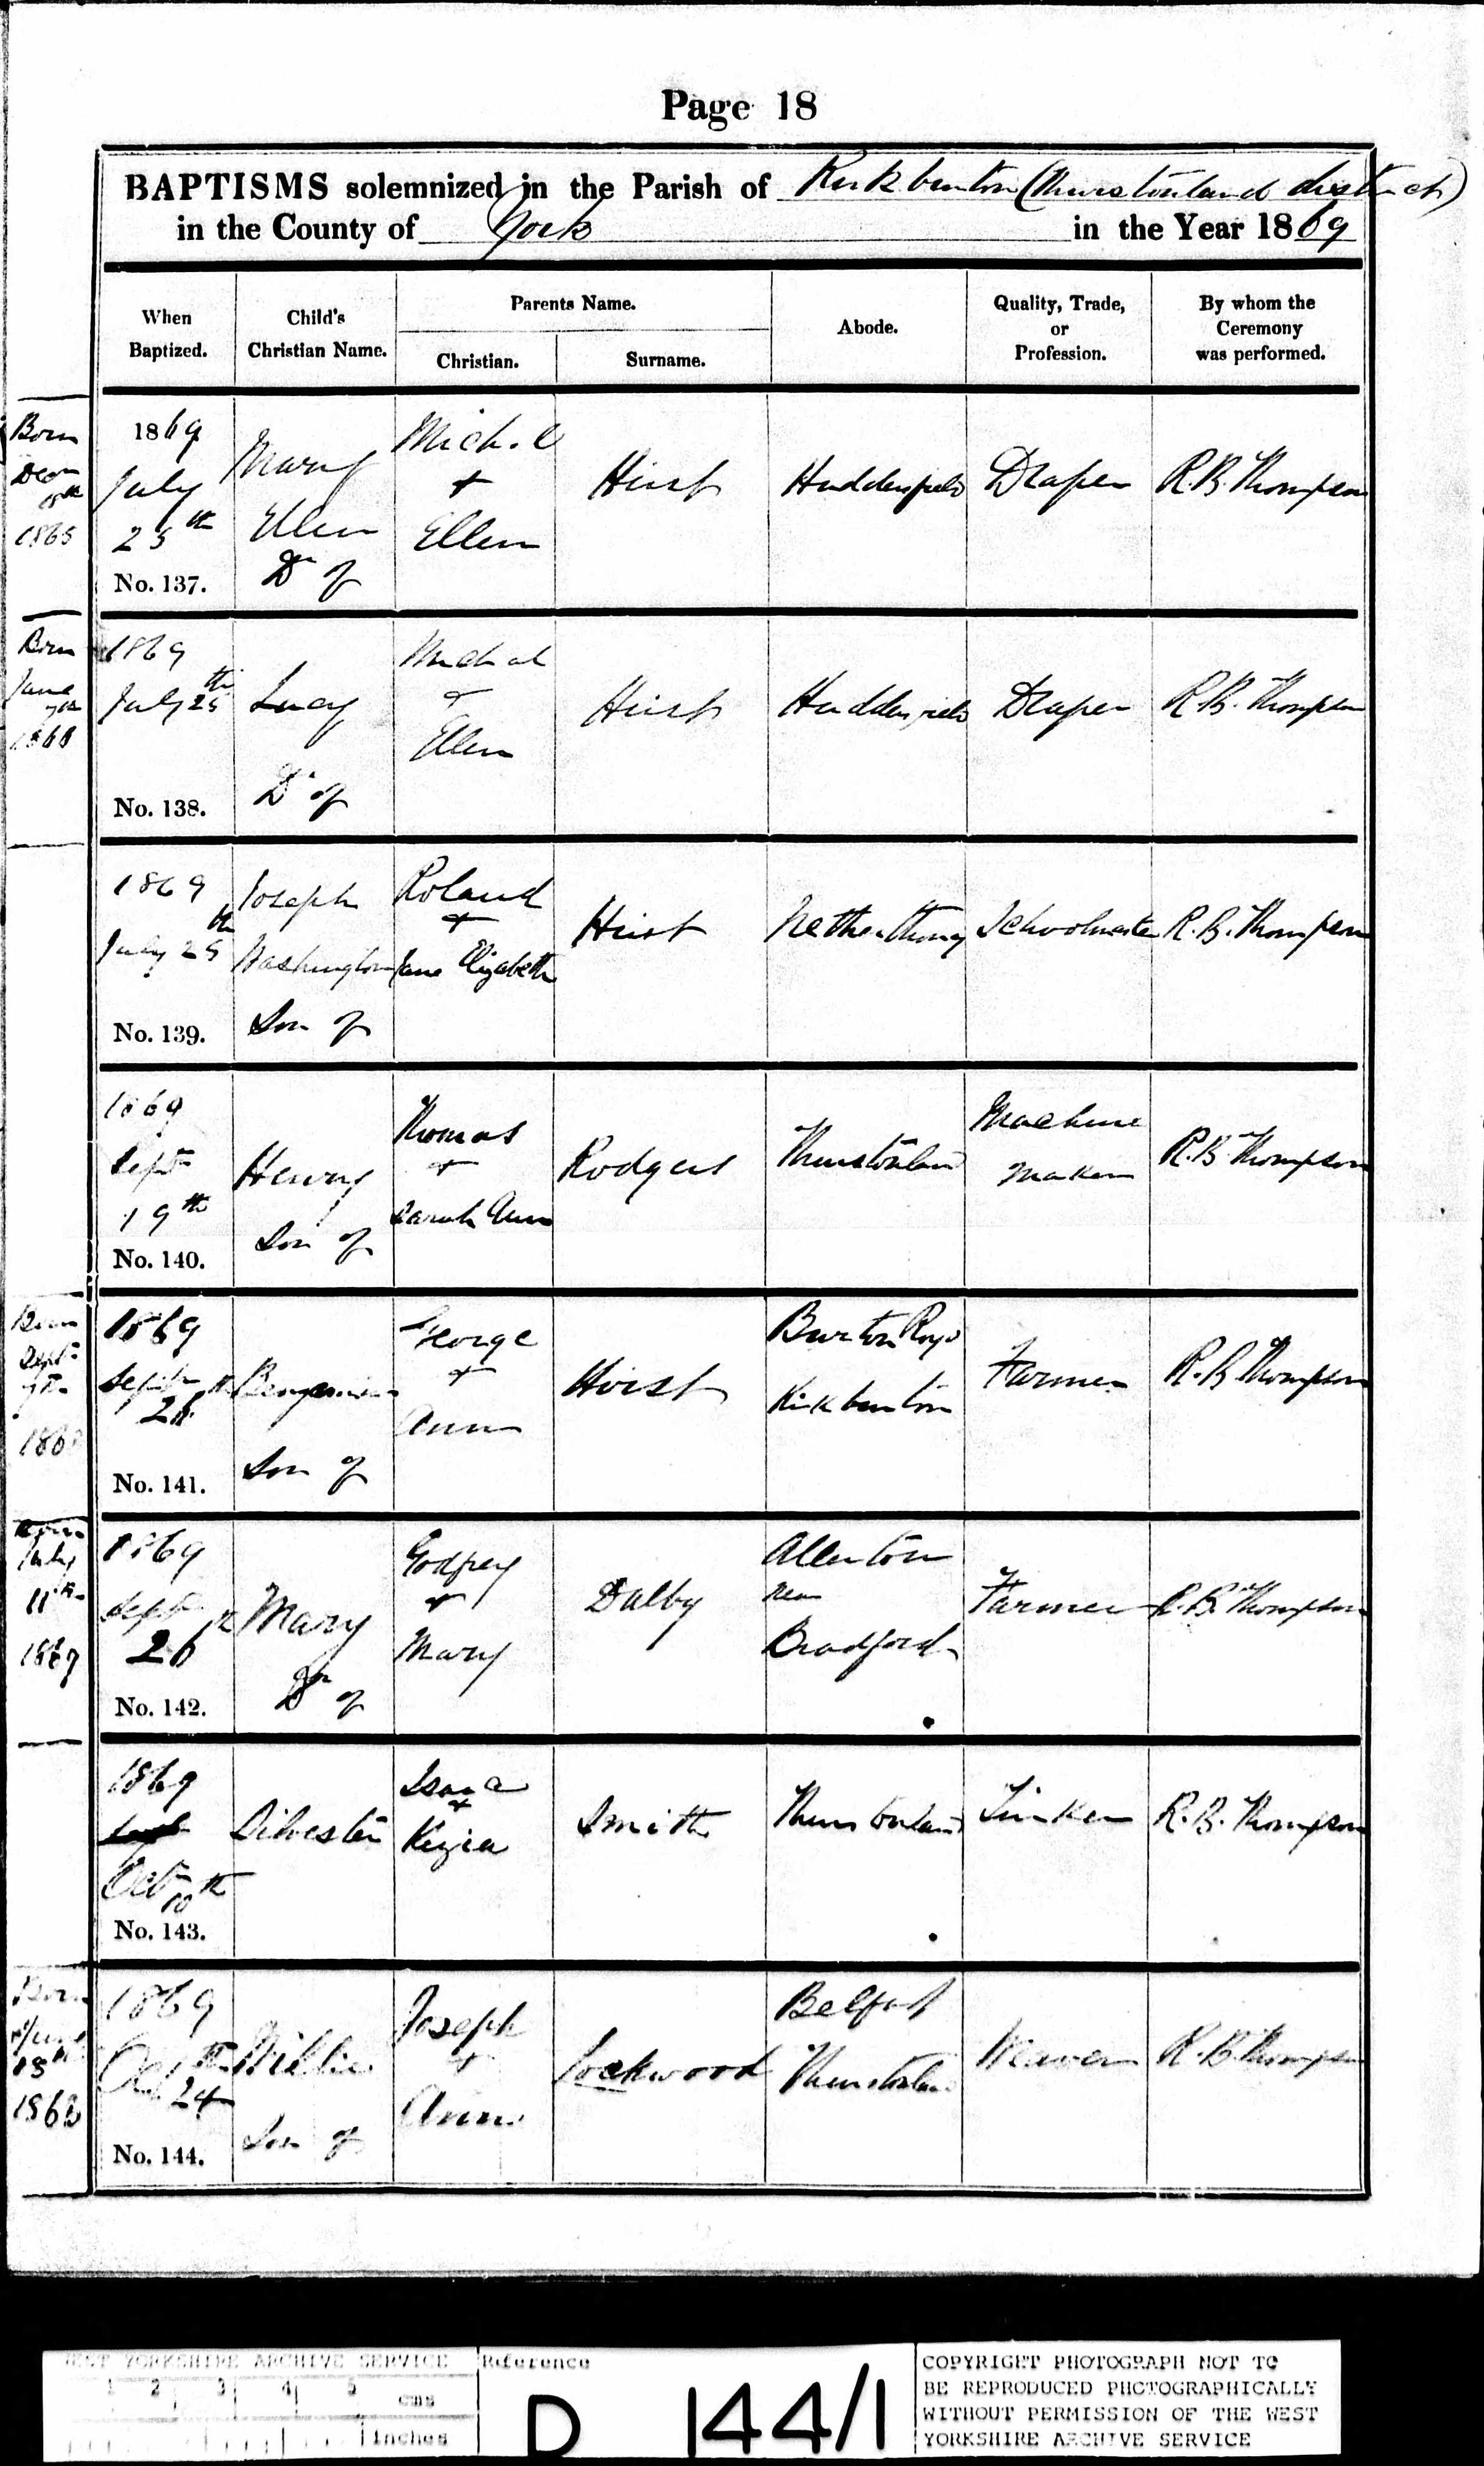 Page 18
BAPTISMS solemnized in the Parish of Kirkburton (Thurstonland district)
in the County of York in the Year 1869
When Baptized.
Child's Christian Name.
Parents Name.
Christian.
Surname.
Abode.
Quality, Trade, or Profession.
By whom the Ceremony was performed.
Born
1865
1869
July
25th
No. 137.
Mary
Ellen
Dr of
+
Ellen
Hirst
Huddersfield
Draper
R.B. Thompson
Born
June
7th
1869
July 25th
No. 138.
Lucy
Dr of
Michael
+
Ellen
Hirst
Huddersfield
Draper
R.B. Thompson
1869
July 25th
No. 139.
Joseph
Washington
Son of
Roland
+
Jane Elizabeth
Hirst
Netherthong
Schoolmaster
R.B. Thompson
1869
Sept
19th
No. 140.
Henry
Son of
Thomas
+
Sarah Ann
Rodgers
Thurstonland
Machine
Maker
R.B. Thompson
Born
Sept
7th
1869
Sept 26th
No. 141.
Benjamin
Son of
George
+
Ann
Hirst
Burton Royd
Kirkburton
Farmer
R.B. Thompson
Born
July
11th
1869
1869
Sept 26th
No. 142.
Mary
Dr of
Godfrey
+
Mary
Dalby
Allerton
near
Bradford
Farmer
R.B. Thompson
1869
Oct 10th
No. 143.
Silvester
Isaac
+
Kezia
Smith
Thurstonland
Tinker
R.B. Thompson
Born
June
1869
Oct 24th
No. 144.
Willie
Son of
Joseph
+
Ann
Lockwood
Belfast
Thurstonland
Weaver
R.B. Thompson
WEST YORKSHIRE ARCHIVE SERVICE
1 2 3 4 5
cms
inches
Reference
D 144/1
COPYRIGHT PHOTOGRAPH NOT TO
BE REPRODUCED PHOTOGRAPHICALLY
WITHOUT PERMISSION OF THE WEST
YORKSHIRE ARCHIVE SERVICE